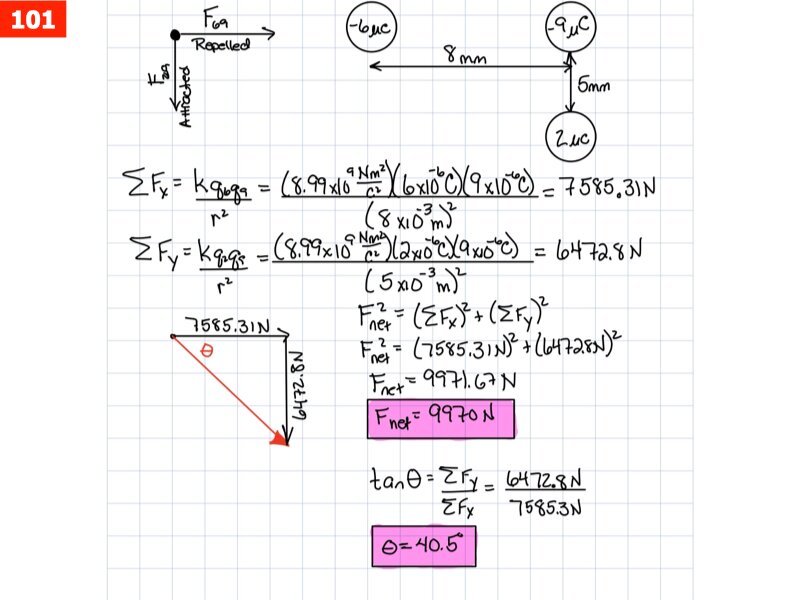 101
F₆₉
Repelled
F₂₉
Attracted
-6μC
-9μC
8mm
5mm
2μC
ΣFx = kq₆q₉/r² = (8.99x10⁹ Nm²/C²)(6x10⁻⁶C)(9x10⁻⁶C)/(8x10⁻³m)² = 7585.31N
ΣFy = kq₂q₉/r² = (8.99x10⁹ Nm²/C²)(2x10⁻⁶C)(9x10⁻⁶C)/(5x10⁻³m)² = 6472.8N
7585.31N
θ
6472.8N
F²net = (ΣFx)² + (ΣFy)²
F²net = (7585.31N)² + (6472.8N)²
Fnet = 9971.67N
Fnet = 9970N
tanθ = ΣFy/ΣFx = 6472.8N/7585.3N
θ = 40.5°